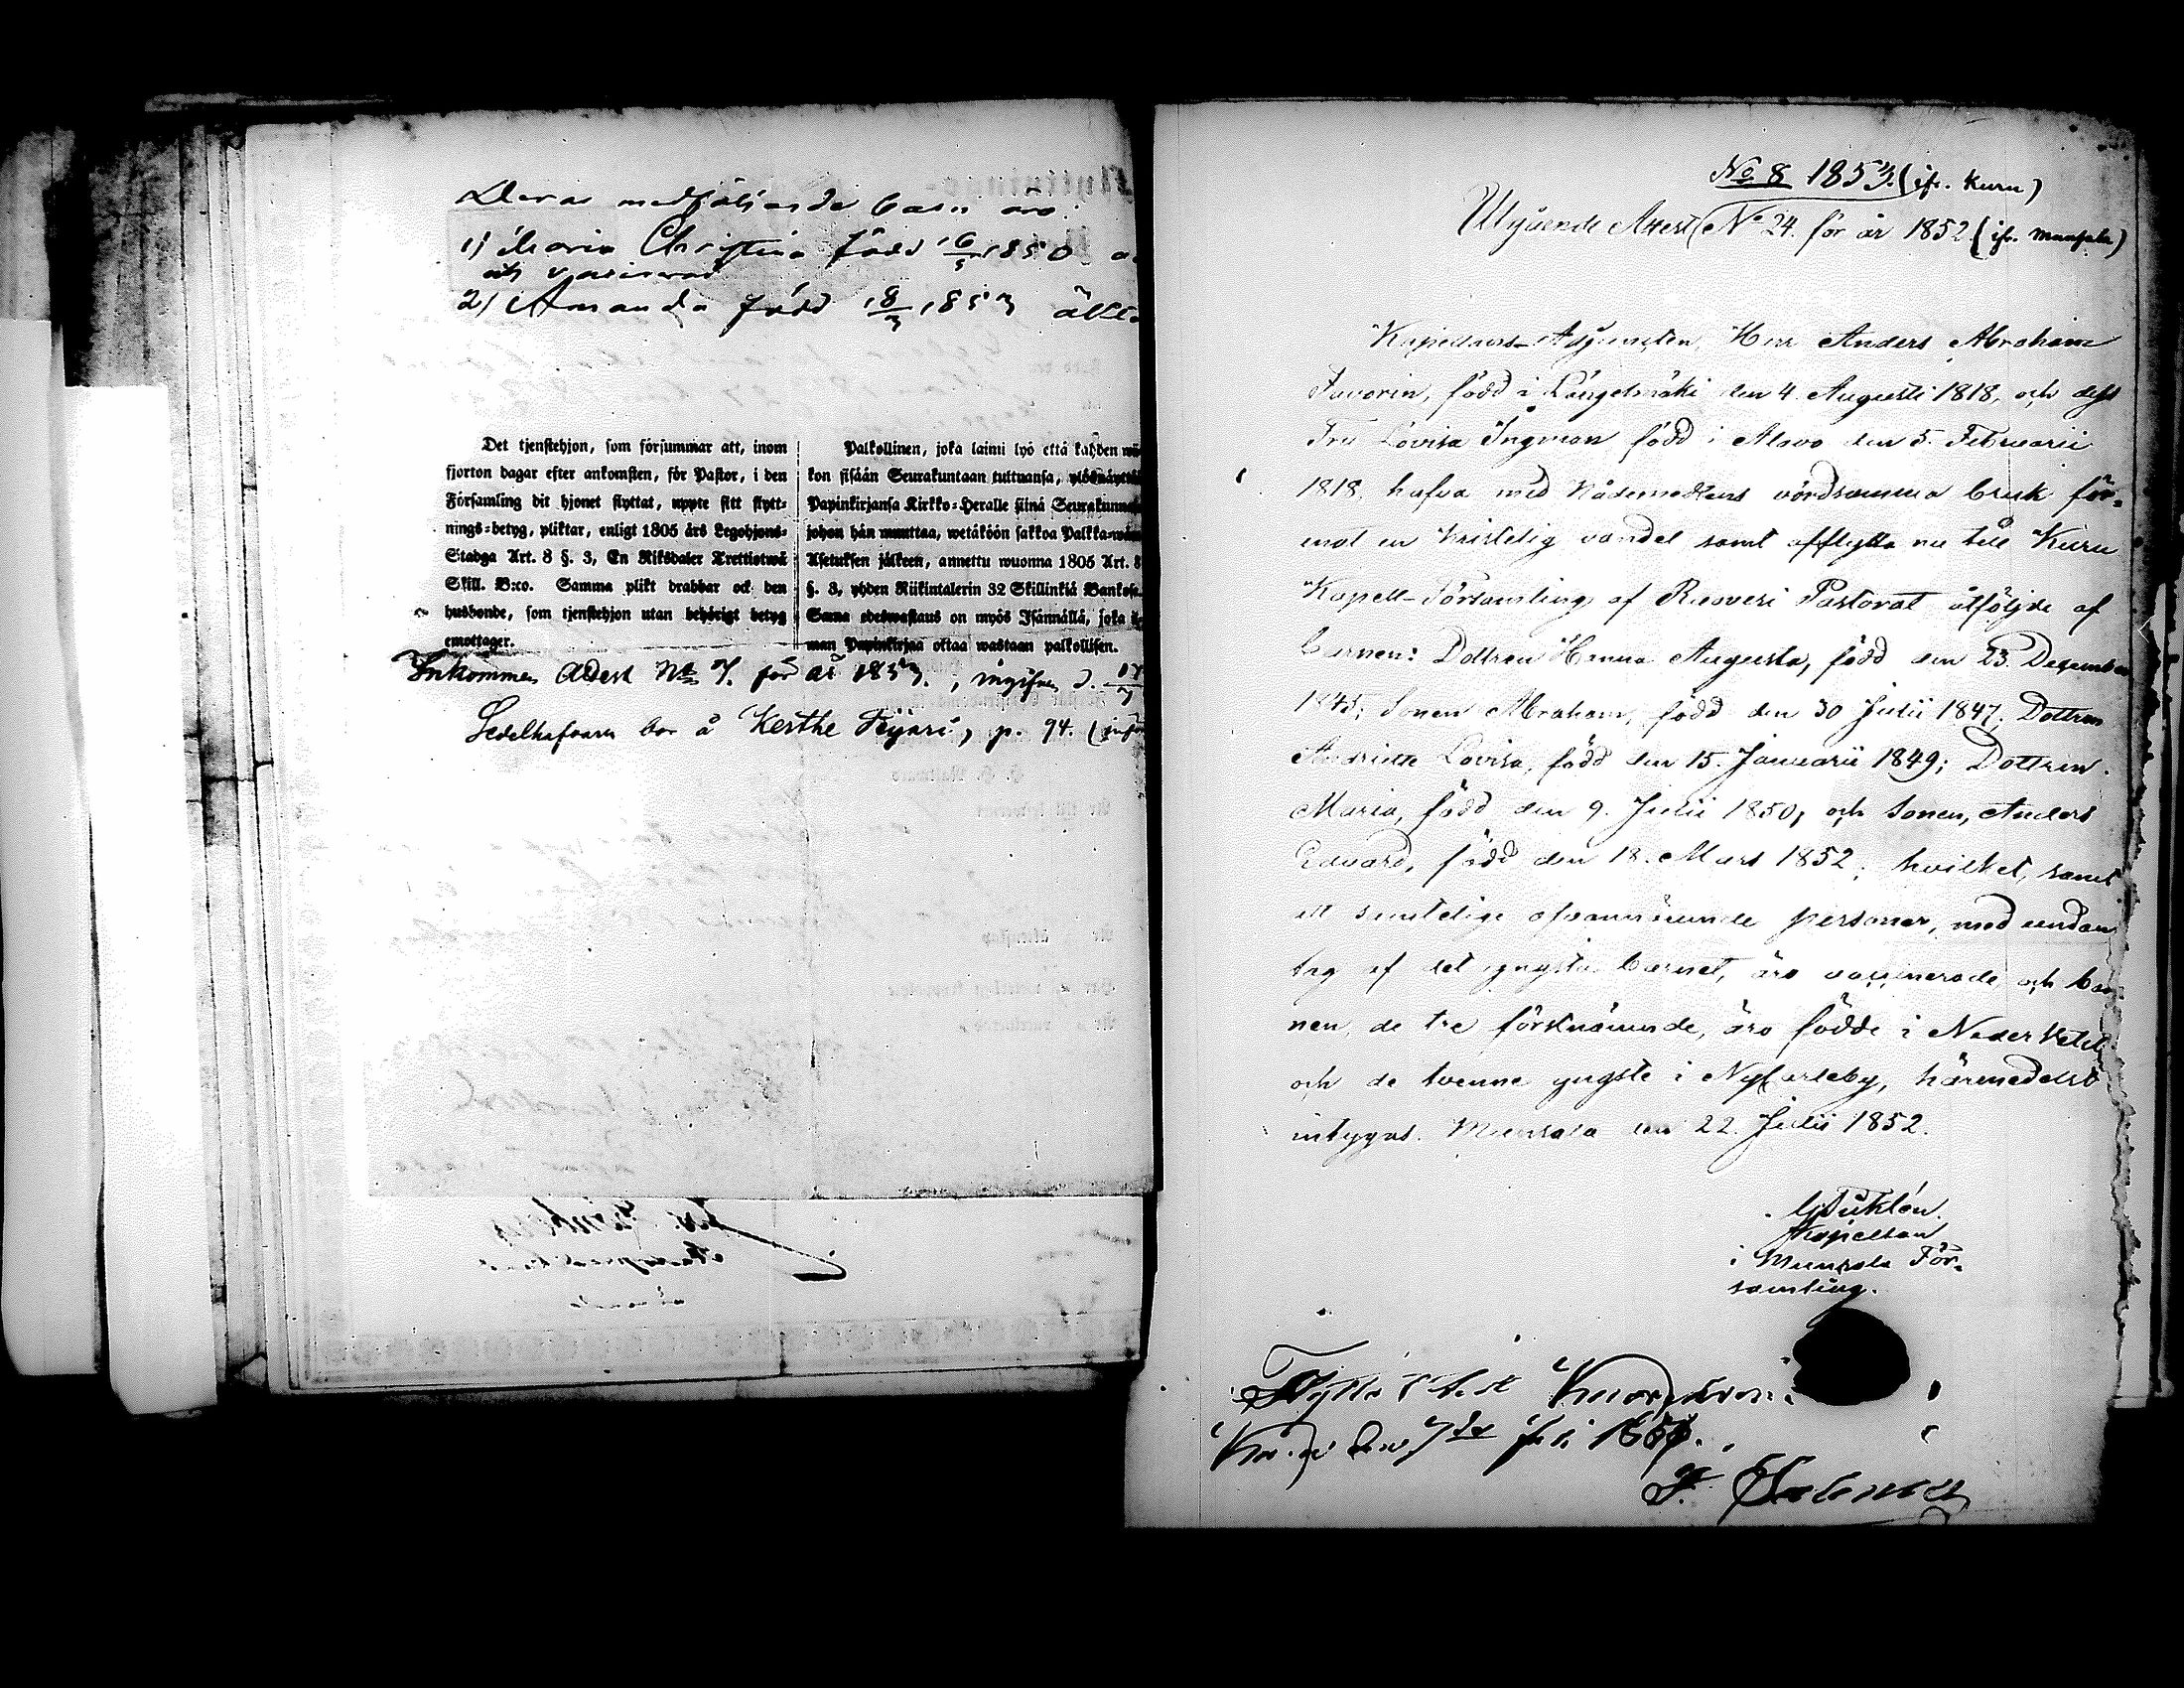 Deras medföljande barn äro
1) Maria Christina född 16/5 1850
och vaccinerad
2) Amanda född 18/3 1853 äkta
Det tjenstehjon, som försummar att, inom
fjorton dagar efter ankomsten, för Pastor, i den
Församling dit hjonet flyttat, uppte sitt flytt-
nings-betyg, pliktar, enligt 1805 års Legohjons-
Stadga Art. 8 §. 3, En Riksdaler Trettiotwå
Skill. B:co. Samma plikt drabbar ock den
husbonde, som tjenstehjon utan behörigt betyg
emottager.
Palkollinen, joka laimi lyö että kahden wii-
kon sisään Seurakuntaan tultuansa, ylösnäyttää
Papinkirjansa Kirkko-Heralle siinä Seurakunnassa
johon hän muuttaa, wetäköön sakkoa Palkka-wäen
Asetuksen jälkeen, annettu wuonna 1805 Art. 8
§. 3, yhden Riikintalerin 32 Skillinkiä Bankosa.
Sama edeswastaus on myös Isännällä, joka
man Papinkirjaa ottaa wastaan palkollisen.
Inkommen Attest No 7. för år 1853., ingifven d. 17/7
Sedelhafvaren bor å Kerthe, p. 94.
No 8 1853. (ifr. Kuru)
Utgående Attest No 24. för år 1852 (ifr. Munsala)
Kapellans-Adjuncten, Herr Anders Abraham
Favorin, född i Längelmäki den 4. Augusti 1818, och dess
Fru Lovisa Ingman född i Alavo den 5. Februarii
1818, hafva med Nådemedlens vördsamma bruk för-
enat en Kristelig vandel samt afflytta nu till Kuru
Kapell-Församling af Ruovesi Pastorat åtföljde af
barnen: Dottren Hanna Augusta, född den 23. December
1845; Sonen Abraham, född den 30 Julii 1847; Dottren
Andriette Lovisa, född den 15. Januarii 1849; Dottren
Maria, född den 9. Julii 1850; och Sonen, Anders
Edvard, född den 18. Mars 1852; hvilket, samt
att samtelige ofvannämnde personer, med undan
tag af det yngsta barnet, äro vaccinerade och bar-
nen, de tre förstnämnde, äro födde i Neder Vetil
och de tvenne yngste i Nykarleby, härmedelst
intygas. Munsala den 22. Julii 1852.
Kapellan
i Munsala För-
samling.